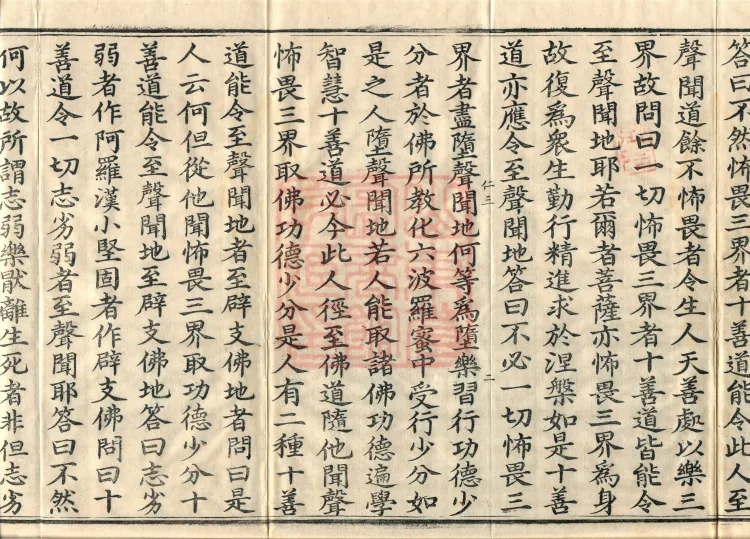 答曰不然怖畏三界者十善道能令此人至
聲聞道餘不怖畏者令生人天善處以樂三
界故問曰一切怖畏三界者十善道皆能令
至聲聞地耶若爾者菩薩亦怖畏三界爲身
故復爲衆生勤行精進求於涅槃如是十善
道亦應令至聲聞地答曰不必一切怖畏三
仁三 二
界者盡墮聲聞地何等爲墮樂習行功德少
分者於佛所教化六波羅蜜中受行少分如
是之人墮聲聞地若人能取諸佛功德遍學
智慧十善道必令此人徑至佛道隨他聞聲
怖畏三界取佛功德少分是人有二種十善
道能令至聲聞地者至辟支佛地者問曰是
人云何但從他聞怖畏三界取功德少分十
善道能令至聲聞地至辟支佛地答曰志劣
弱者作阿羅漢小堅固者作辟支佛問曰十
善道令一切志劣弱者至聲聞耶答曰不然
何以故所謂志弱樂猒離生死者非但志劣